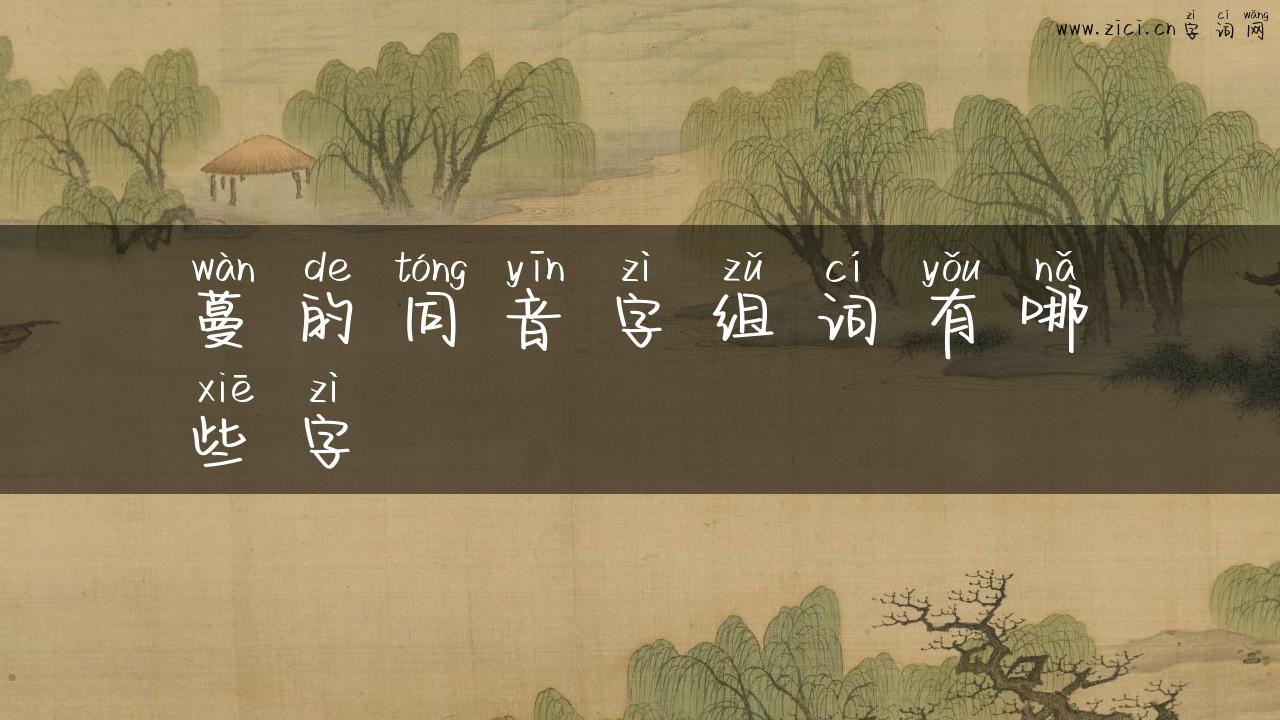 zì cí wǎng
www.zici.cn字词网
wàn de tóng yīn zì zǔ cí yǒu nǎ
蔓的同音字组词有哪
xiē zì
些字